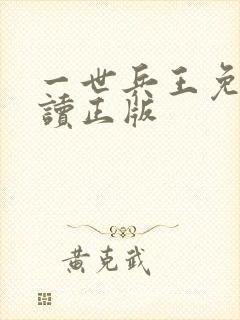 一世兵王免
讀正版
黃克武